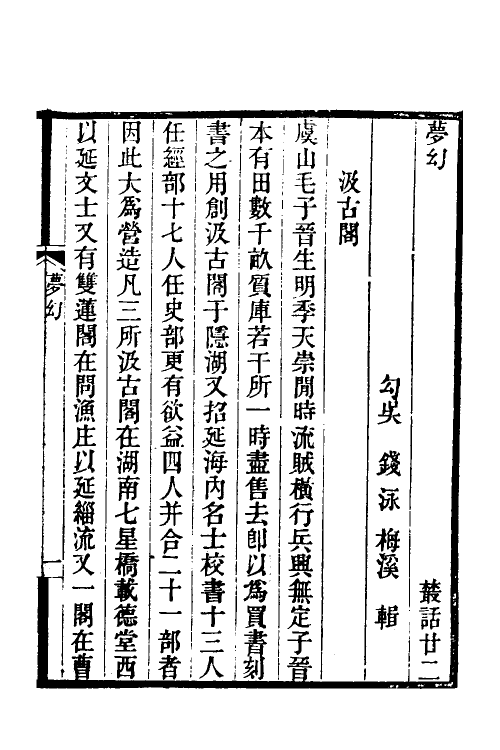 夢幻 叢話廿二
勾吳 錢泳 梅溪 輯
汲古閣
虞山毛子晉生明季天崇閒時流賊橫行兵興無定子晉
本有田數千畝質庫若干所一時盡售去卽以爲買書刻
書之用創汲古閣于隱湖又招延海內名士校書十三人
任經部十七人任史部更有欲益四人并合二十一部者
因此大爲營造凡三所汲古閣在湖南七星橋載德堂西
以延文士又有雙蓮閣在問漁庄以延緇流又一閣在曹
夢幻 一